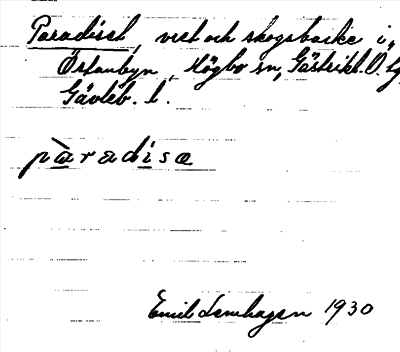 Paradiset, vret och skogsbacke i
Östanbyn, Högbo sn, Gästrikl. Ö. tg,
Gävleb. l.
pàradisa
Emil Lemhagen 1930